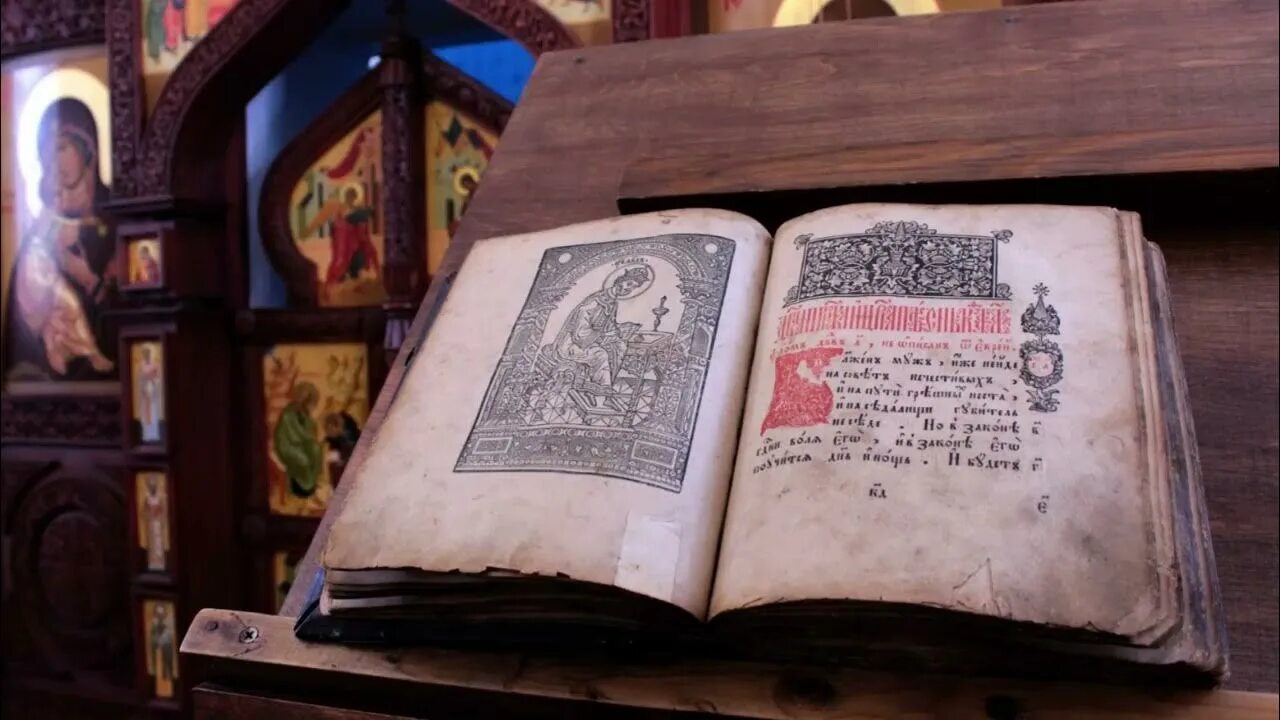 не ѡ҆пи́санъ ѿ є҆вре́й.
Блаже́нъ мꙋ́жъ, и҆́же не и҆́де
на совѣ́тъ нечести́выхъ,
и҆ на пꙋтѝ грѣ́шныⷯ не ста̀,
и҆ на сѣда́лищи гꙋби́тель
не сѣ́де. Но в зако́нѣ в҃
гдⷭ҇ни во́лѧ є҆гѡ̀, и҆ в зако́нѣ є҆гѡ̀
поꙋчи́тсѧ дн҃ь и҆ но́щь. И҆ бꙋ́детъ г҃
к҃д
є҃